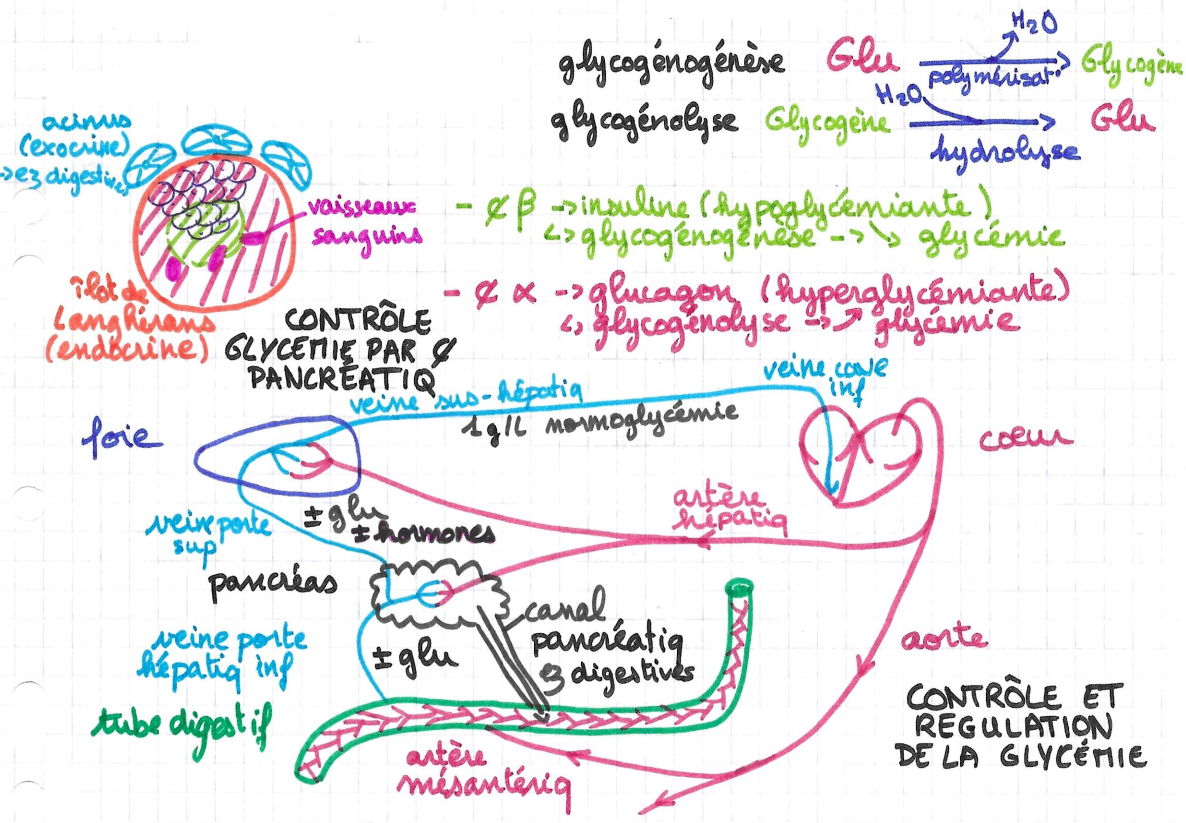 glycogénogénèse Glu H₂O polymérisat° Glycogène
glycogénolyse Glycogène H₂O hydrolyse Glu
acinus
(exocrine)
→ez digestives
vaisseaux
sanguins
îlot de
Langhérans
(endocrine)
- ¢ β → insuline (hypoglycémiante)
↳ glycogénogénèse → ↘ glycémie
- ¢ α → glucagon (hyperglycémiante)
↳ glycogénolyse → ↗ glycémie
CONTRÔLE
GLYCEMIE PAR ¢
PANCRÉATIQ
veine sus-hépatiq
1 g/L normoglycémie
veine cave
inf
foie
coeur
artère
hépatiq
veine porte
sup
± glu
± hormones
pancréas
canal
pancréatiq
ez digestives
veine porte
hépatiq inf
± glu
aorte
tube digestif
artère
mésantériq
CONTRÔLE ET
REGULATION
DE LA GLYCÉMIE